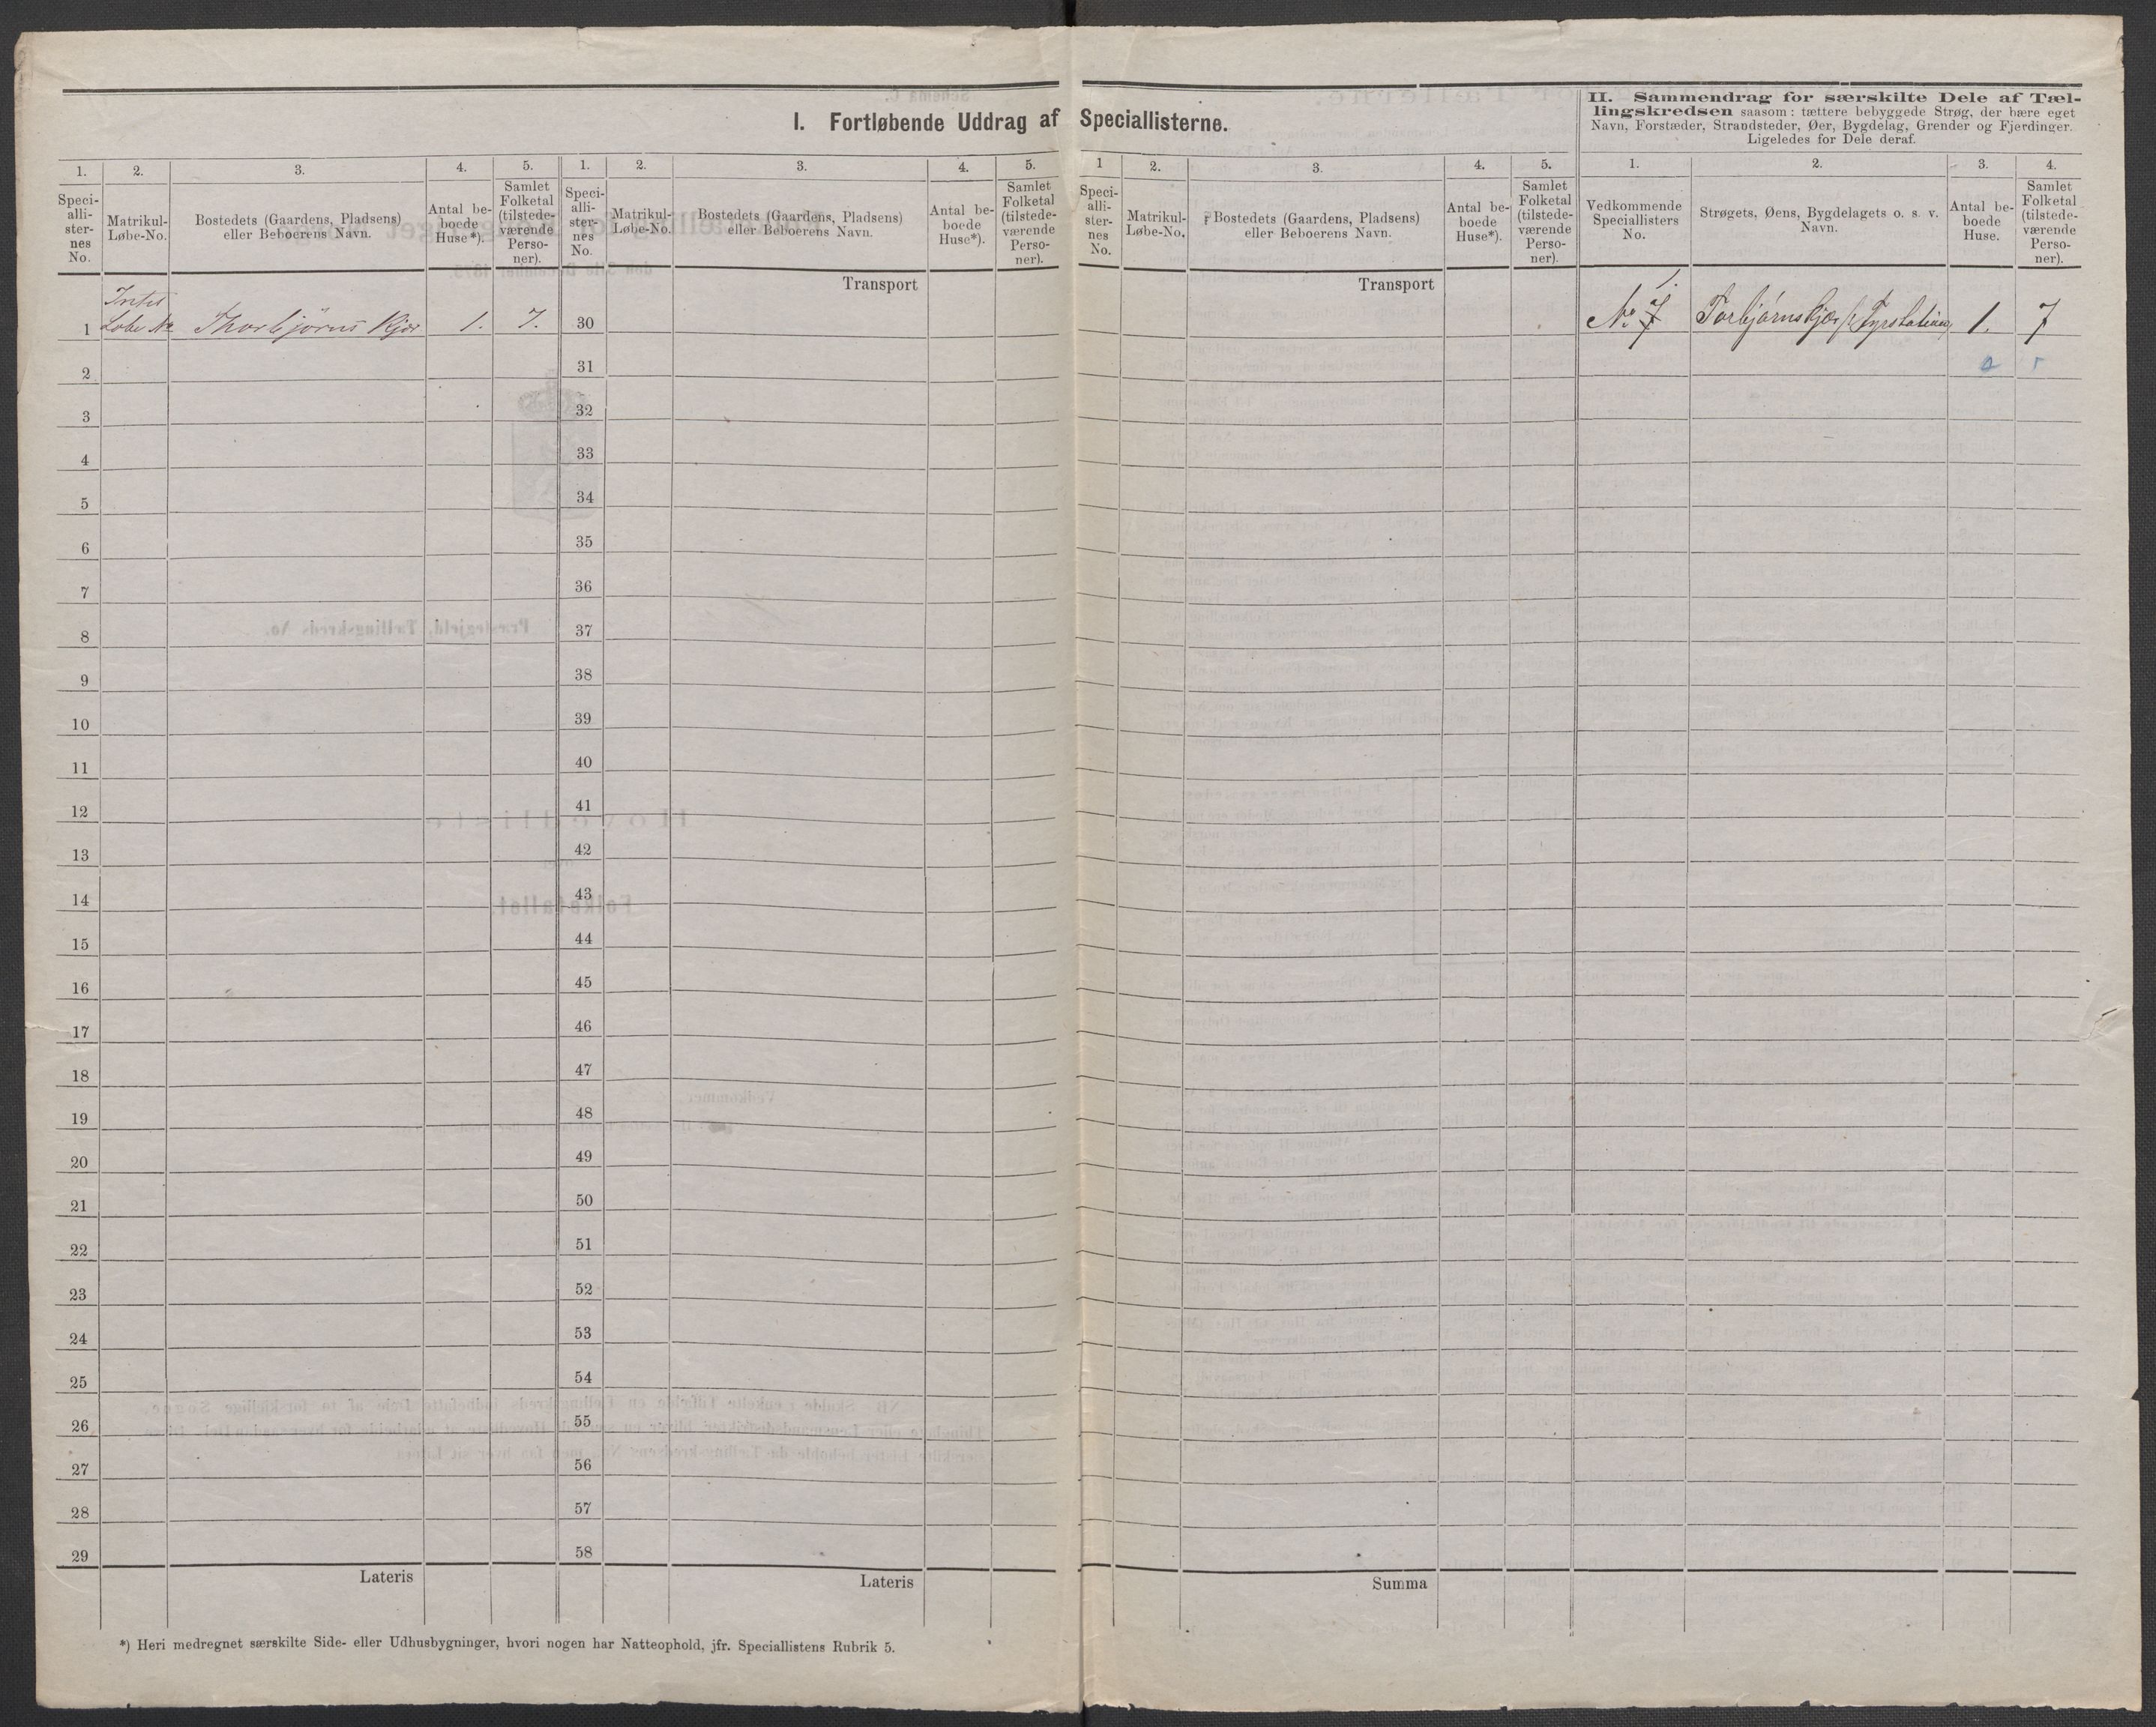 I. Fortløbende Uddrag af Speciallisterne.
II. Sammendrag for særskilte Dele af Tæl-
lingskredsen saasom: tættere bebyggede Strøg, der bære eget
Navn, Forstæder, Strandsteder, Øer, Bygdelag, Grender og Fjerdinger.
Ligeledes for Dele deraf.
1. 2. 3. 4. 5. 1. 2. 3. 4. 5. 1 2. 3. 4. 5. 1. 2. 3. 4.
Speci-
alli-
ster-
nes
No.
Matrikul-
Løbe-No.
Bostedets (Gaardens, Pladsens)
eller Beboerens Navn.
Antal be-
boede
Huse*).
Samlet
Folketal
(tilstede-
værende
Perso-
ner).
Speci-
alli-
ster-
nes
No.
Matrikul-
Løbe-No.
Bostedets (Gaardens, Pladsens)
eller Beboerens Navn.
Antal be-
boede
Huse*).
Samlet
Folketal
(tilstede-
værende
Perso-
ner).
Speci-
alli-
ster-
nes
No.
Matrikul-
Løbe-No.
Bostedets (Gaardens, Pladsens)
eller Beboerens Navn.
Antal be-
boede
Huse*).
Samlet
Folketal
(tilstede-
værende
Perso-
ner).
Vedkommende
Speciallisters
No.
Strøgets, Øens, Bygdelagets o. s. v.
Navn.
Antal be-
boede
Huse.
Samlet
Folketal
(tilstede-
værende
Perso-
ner).
Transport
Transport
Intet
1 Løbe No Thorbjørns Kjær 1. 7. 30
1.
No 7 Torbjørnskjær 1. 7
2 31
3 32
4 33
5 34
6 35
7 36
8 37
9 38
10 39
11 40
12 41
13 42
14 43
15 44
16 45
17 46
18 47
19 48
20 49
21 50
22 51
23 52
24 53
25 54
26 55
27 56
28 57
29 58
Lateris
Lateris
Summa
*) Heri medregnet særskilte Side- eller Udhusbygninger, hvori nogen har Natteophold, jfr. Speciallistens Rubrik 5.